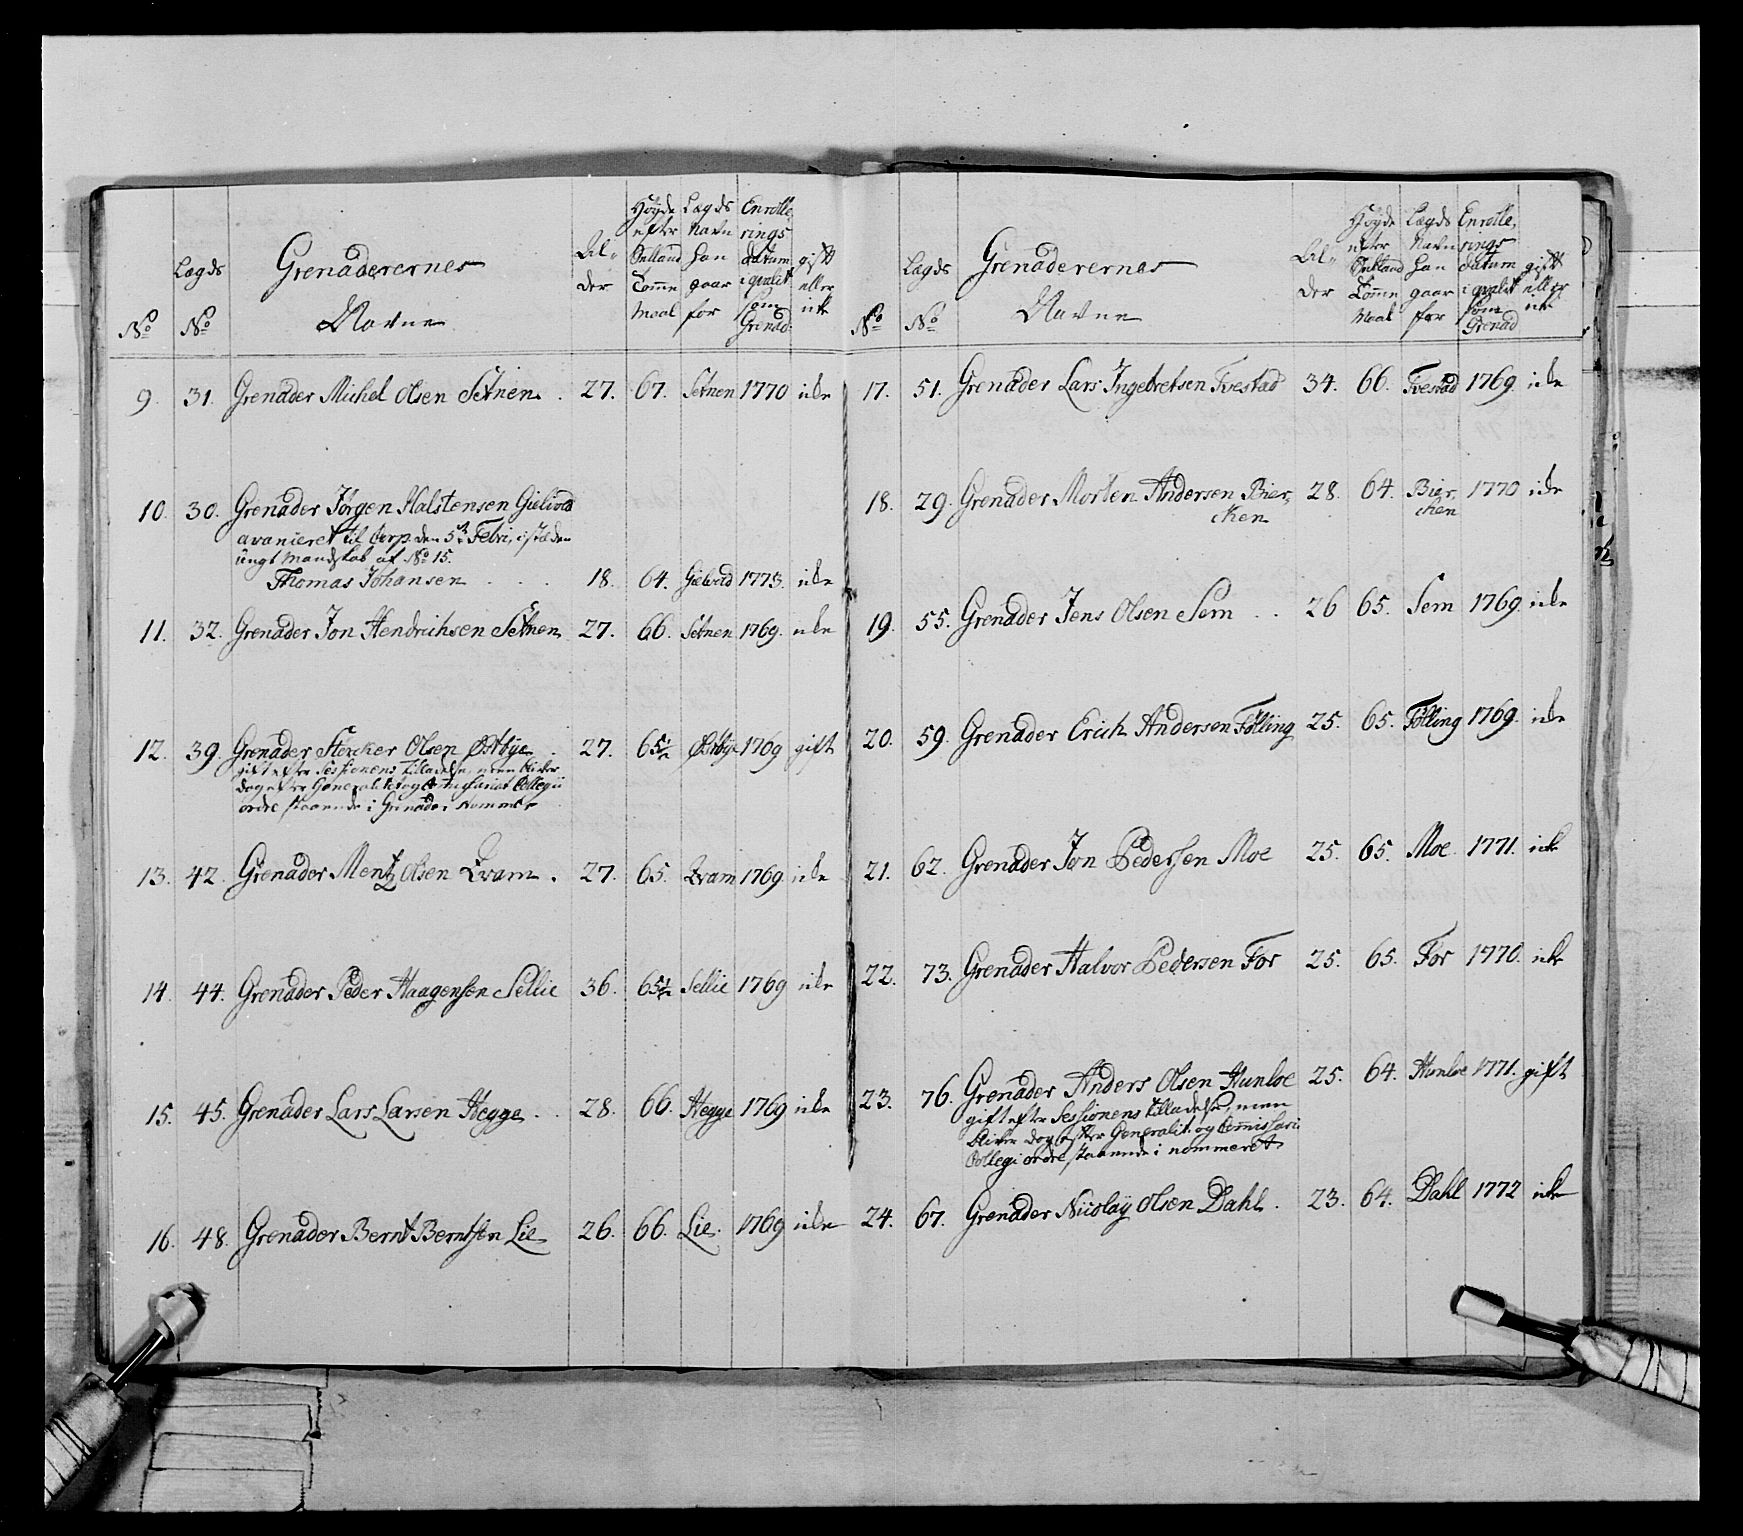 No Lægds No Grenaderernes Navne Al- der Høyde efter Siælland Tomme Maal Lægds Navn han gaar for Enrolle- rings datum i qvalit som Grenad gift eller ikke
9. 31. Grenader Michel Olsen Setnen. 27. 67. Setnen 1770 icke
10. 30. Grenader Jørgen Halstensen Gielsvad
avanieret til Corp. den 5te Febri, i stæden
ungt Mandskab af No 15.
Thomas Johansen 18. 64. Gielsvad 1773. icke
11. 32. Grenader Jon Hendrichsen Setnen 27. 66. Setnen 1769. icke
12. 39. Grenader Stercker Olsen Østbye 27. 65½ Østbye 1769 gift
gift efter Sessionens tilladelse, men bliver
dog efter Generalitet og Comissariat Collegii
ordre staaende i Grenader Nummer
13. 42. Grenader Mentz Olsen Qvam. 27. 65. Qvam 1769 icke
14. 44. Grenader Peder Haagensen Sellie 36. 65½ Sellie 1769 icke
15. 45. Grenader Lars Larsen Hegge 28. 66. Hegge 1769 icke
16. 48. Grenader Bernt Berntsen Lie 26. 66. Lie. 1769 icke
No Lægds No Grenaderernes Navne Al- der Høyde efter Siælland Tomme Maal Lægds Navn han gaar for Enrolle- rings datum i qvalit som Grenad gift eller ikke
17. 51. Grenader Lars Ingebretsen Tvestad 34. 66. Tvestad 1769. icke
18. 29. Grenader Morten Andersen Bier- 28. 64. Bier- 1770 icke
cken cken
19. 55. Grenader Jens Olsen Sem 26 65. Sem 1769. icke
20. 59. Grenader Erich Andersen Følling 25. 65. Følling 1769. icke
21. 62. Grenader Jon Pedersen Moe 25. 65. Moe 1771. icke
22. 73. Grenader Halvor Pedersen For 25. 65. For 1770. icke
23. 76. Grenader Anders Olsen Hunloe 25. 64. Hunloe 1771. gift
gift efter Sessionens tilladelse, men
bliver dog efter Generalit. og Comissari
Collegi ordre staaende i nommeret
24. 67. Grenader Nicolay Olsen Dahl. 23. 64. Dahl 1772 icke